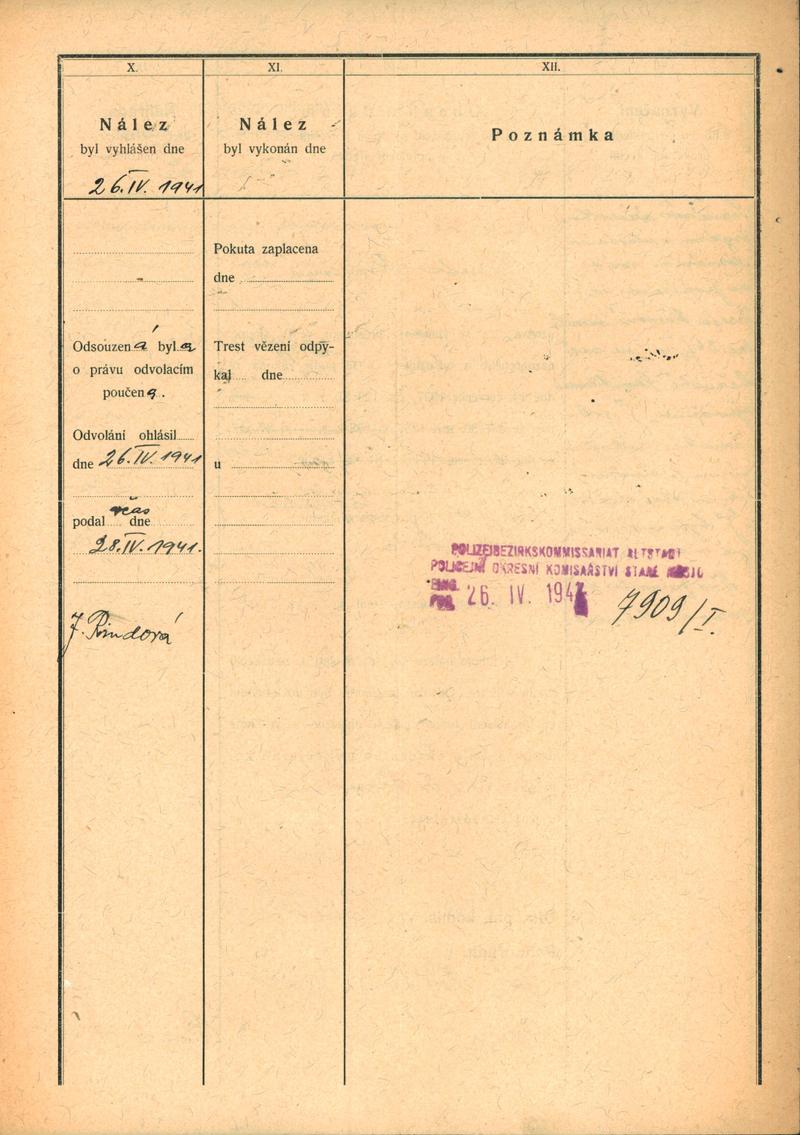 X.
Nález
byl vyhlášen dne
26.IV. 1941
Odsouzená byla
o právu odvolacím
poučena.
Odvolání ohlásil
dne 26.IV. 1941
včas
podal dne
28.IV. 1941.
J. Rindová
XI.
Nález
byl vykonán dne
Pokuta zaplacena
dne
Trest vězení odpy-
kal dne
u
XII.
Poznámka
POLIZEIBEZIRKSKOMMISSARIAT ALTSTADT
POLICEJNÍ OKRESNÍ KOMISAŘSTVÍ STARÉ MĚSTO
26. IV. 1941
7909/I.